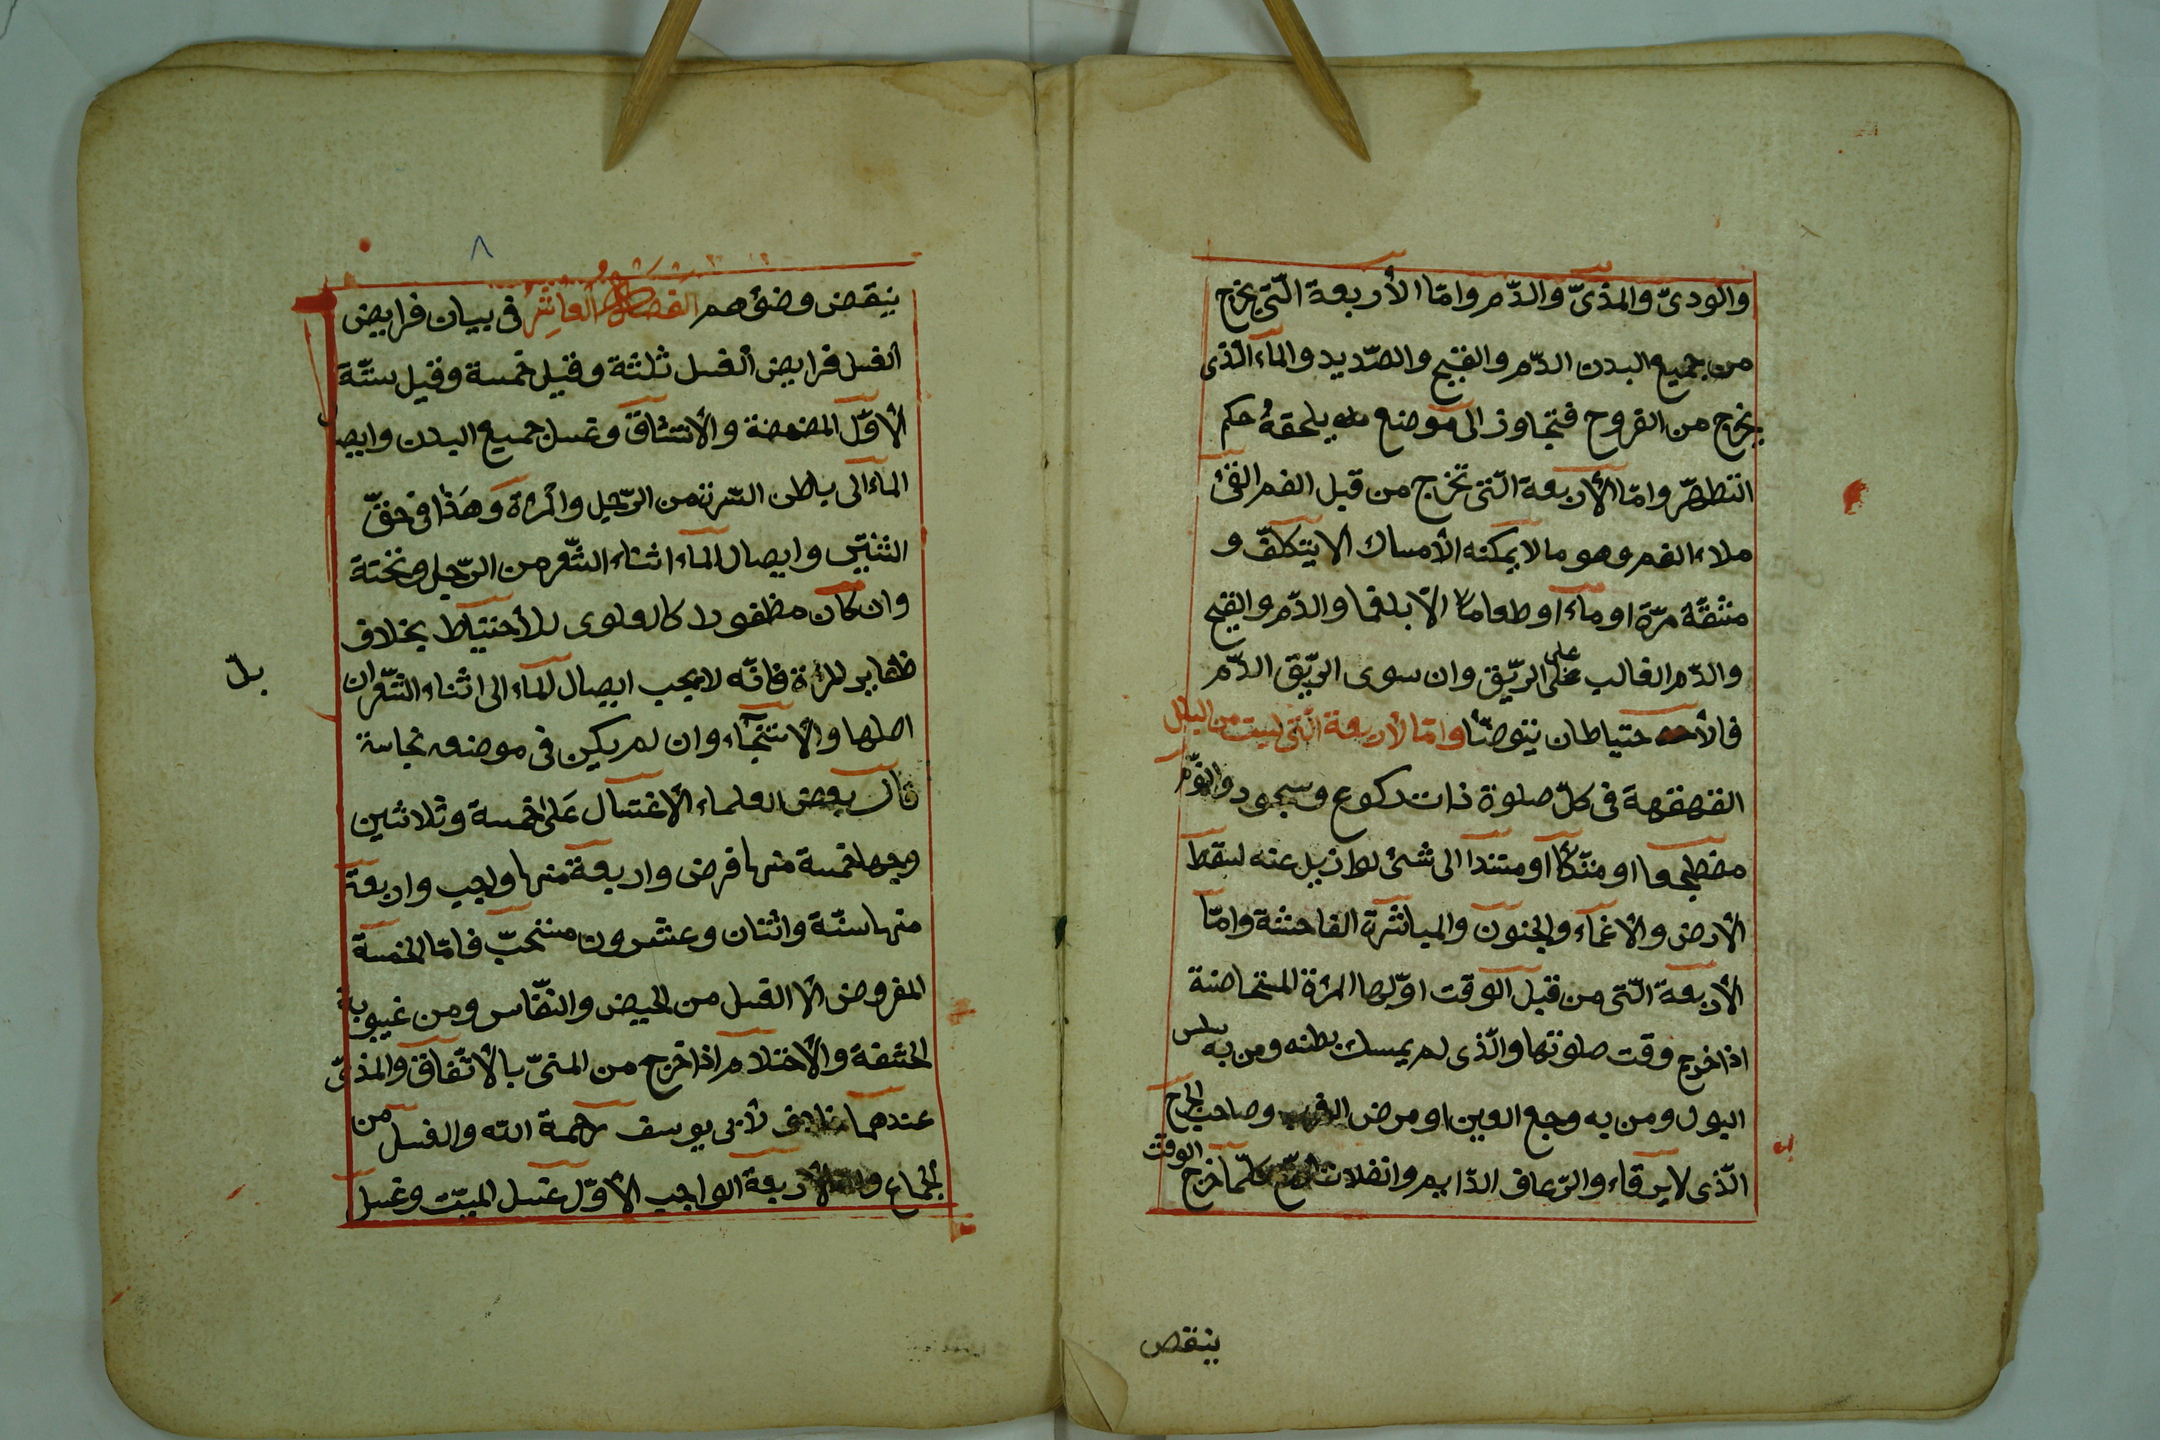 والودىّ والمذىّ والدّم وامّا الأربعة الّتى يخرج
من جميع البدن الدّم والقيح والصّديد والمآء الّذى
يخرج من القروح فتجاوز الى موضع يلحقه حكم
التطهّر وامّا الأربعة الّتى تخرج من قبل الفم القئ
ملاء الفم وهو ما لا يمكنه الأمساك الا يتكلّف و
مرّة او مآء او طعاما الّا بلغما والدّم والقيح
والدّم الغالب على على الرّيق وان سوى الرّيق الدّم
فالأ حتياطان يتوضّأ وامّا الأربعة الّتى ليست من البلل
القهقهة فى كلّ صلوة ذات ركوع وسجود والنّوم
مضطجعا او متّكأ او مستندا الى شئ لو ازيل عنه لسقط
الأرض والاغمآء والجنون والمباشرة الفاحشة وامّا
الأربعة الّتى من قبل الوقت اوّلها المرئة المستحاضة
اذا خرج وقت صلوتها والّذى لم يمسك بطنه ومن به سلس
البول ومن به وجع العين او مرض وصاحب الجرح
الّذى لا يرقاء والرّعاف الدّايم وانفلات كلّما خرج الوقت
ينقص
٨
ينقض وضؤهم الفصل العاشر فى بيان فرايض
الغسل فرايض الغسل ثلثة وقيل خمسة وقيل ستّة
الأوّل المضمضة والأستنشاق وغسل جميع البدن وايصا
المآء الى باطن السّرة من الرّجل والمرأة وهذا فى حقّ
وايصال المآء اثناء الشّعر من الرّجل
وان كان مظفورا كالعلوى للأحتياط بخلاف
ظفاير المرئة فانّه لا يجب ايصال المآء الى اثناء الشّعر ان
بلّ
اصلها والأستنجآء وان لم يكن فى موضعه نجاسة
قال بعض العلماء الأغتسال على خمسة وثلاثين
وجها خمسة منها فرض واربعة منها واجب واربعة
منها سنّة واثنان وعشرون مستحبّ فامّا الخمسة
المفروض الا الغسل من الحيض والنّفاس ومن غيبوبة
الحشفة والأحتلام اذا خرج من المنىّ بالأتّفاق والمذىّ
عندهما خلاف لأبى يوسف رحمة الله والغسل من
الجماع الأربعة الواجب الأوّل غسل الميّت وغسل